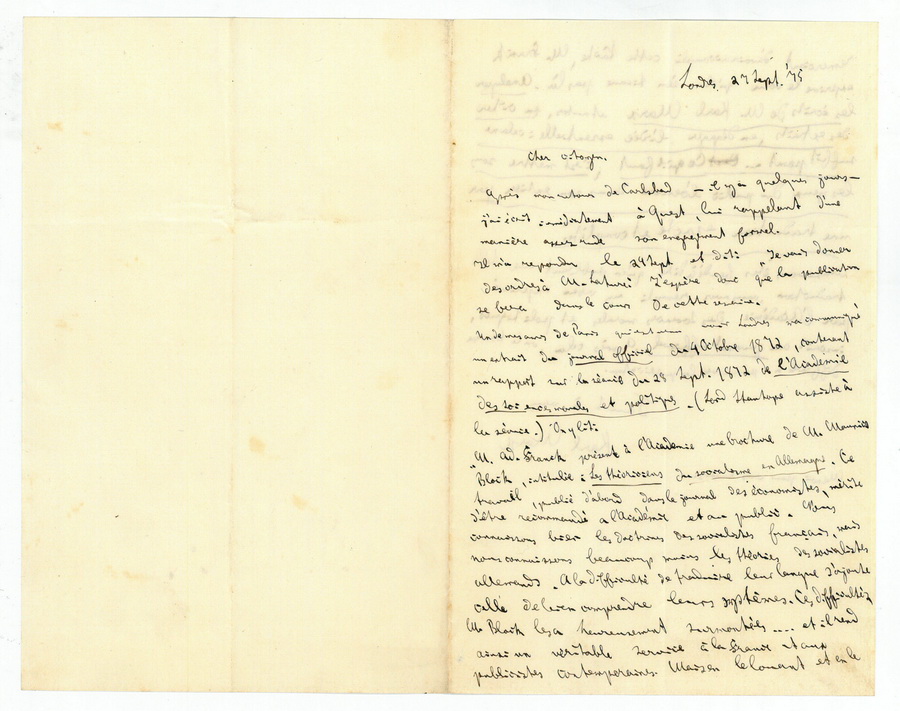 Londres. 27 Sept. '75
Cher citoyen.
Après mon retour de Carlsbad — il y a quelques jours —
j'ai écrit immédiatement à Quest, lui rappelant d'une
manière assez rude son engagement formel.
Il m'a repondu le 24 Sept et dit: "Je vais donner
des ordres à M. Lahure. J'espère donc que la publication
se fera dans le cours de cette semaine.
Un de mes amis de Paris qui est venu voir Londres m'a communiqué
un extrait du journal officiel du 9 Octobre 1872, contenant
un rapport sur la séance du 28 Sept. 1872 de l'Académie
des sciences morales et politiques. (Lord Stanhope assista à
la séance.) On y lit:
"M. Ad. Franck présente à l'Académie une brochure de M. Maurice
Block, intitulée: Les théoriciens du socialisme en Allemagne. Ce
travail, publié d'abord dans le journal des économistes, mérite
d'être recommandé a l'Académie et au public. Nous
connaissons bien les doctrines des socialistes français, mais
nous connaissons beaucoup moins les théories des socialistes
allemands. A la difficulté de traduire leur langue s'ajoute
celle de bien comprendre leurs systèmes. Ces difficultés
M. Block les a heureusement surmontées .... et il rend
ainsi un véritable service à la France et aux
publicistes contemporains. Mais en le louant et en le